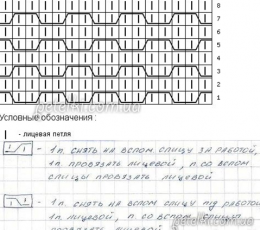 8
7
6
5
4
3
2
1
Условные обозначения:
| - лицевая петля
- 1п. снять на вспом. спицу за работой,
1п. провязать лицевой, п. со вспом
спицы провязать лицевой
- 1п. снять на вспом. спицу под работо
1п. лицевой, п. со вспом. спицы
провязать лицевой